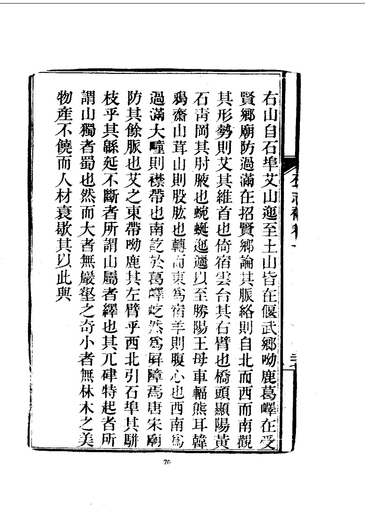 右山自石埠艾山迤至土山皆在偃武鄉呦鹿葛嶧在受
賢鄉廟防過滿在招賢鄉論其脈絡則自北而西而南觀
其形勢則艾其維首也倚宿雲台其右臂也橋頭顯陽黃
石靑岡其肘腋也蜿蜒迤邐以至勝陽王母車輻熊耳韓
鵶齋山茸山則股肱也轉而東爲宿羊則腹心也西南爲
過滿大疃則襟帶也南訖於葛嶧屹然爲屏障爲唐宋廟
防其餘脈也艾之東帶呦鹿其左臂乎西北引石埠其駢
枝乎其緜延不斷者所謂山屬者繹也其兀硉特起者所
謂山獨者蜀也然而大者無巖壑之奇小者無林木之美
物產不饒而人材衰歇其以此與
70